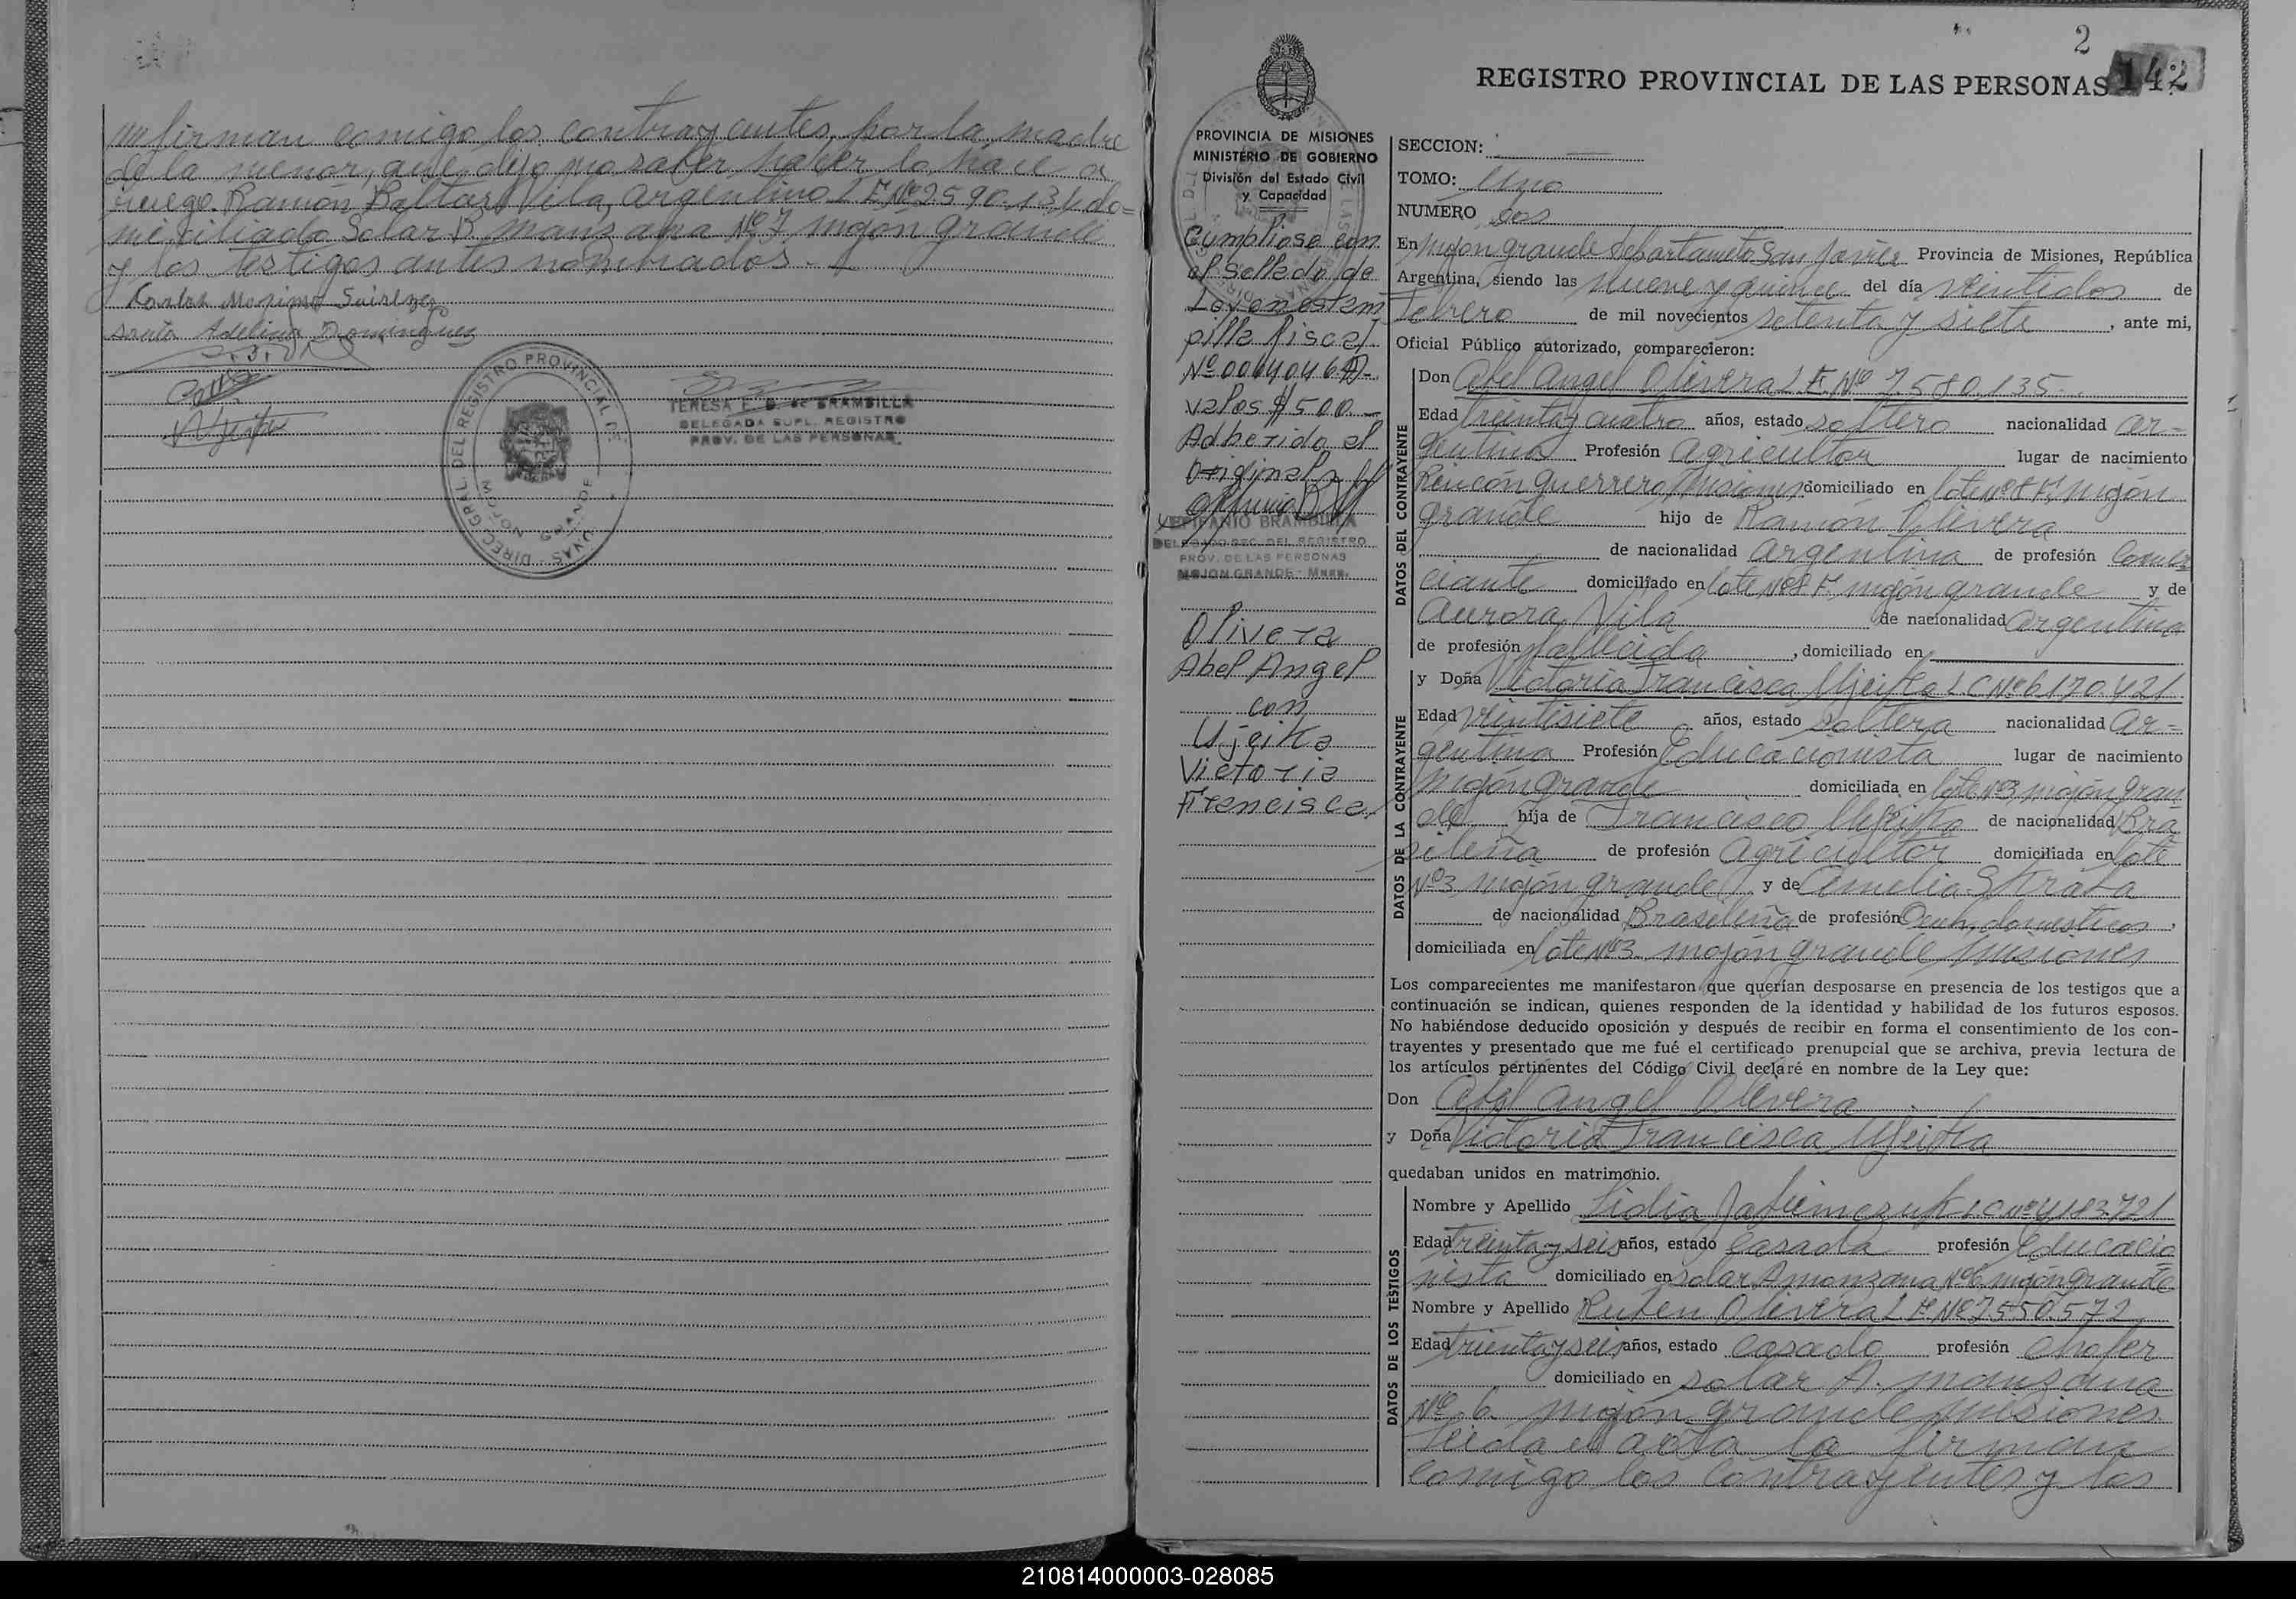 firman comigo los contrayentes, por la madre
de la menor, que dijo no saber haber lo hace a
ruego Ramón Baltazar Vila, argentino L E Nº 2590.134 do=
miciliado Solar B manzana Nº 7 mojón grande
y los testigos antes nombrados.-
Adelina Dominguez
TERESA E. B. de BRAMBILLA
DELEGADA SUPL. REGISTRO
PROV. DE LAS PERSONAS
DIREC. GRAL. DEL REGISTRO PROVINCIAL DE
MOJON GRANDE
2
142
REGISTRO PROVINCIAL DE LAS PERSONAS
PROVINCIA DE MISIONES
MINISTERIO DE GOBIERNO
División del Estado Civil
y Capacidad
Cumpliose con
el sellado de
Ley en estam
pilla fiscal
Nº
valos $ 500 -
Adherido al
original
EPIFANIO BRAMBILLA
DELEGADO SEC. DEL REGISTRO
PROV. DE LAS PERSONAS
MOJON GRANDE - Mnes.
Olivera
Abel Angel
con
Ujeika
Victoria
Francisca
SECCION:
TOMO: Uno
NUMERO dos
En Mojon grande departameto San Javier Provincia de Misiones, República
Argentina, siendo las Nueve y quince del día veintidos de
Febrero de mil novecientos setenta y siete, ante mi,
Oficial Público autorizado, comparecieron:
DATOS DEL CONTRAYENTE
Don Abel Angel Olivera L E Nº 7.580.135.
Edad treinta y cuatro años, estado soltero nacionalidad ar=
gentina Profesión agricultor lugar de nacimiento
Rincón guerrero Misiones domiciliado en lote Nº 8 F. mojón
grande hijo de Ramón Olivera
de nacionalidad argentina de profesión Comer
ciante domiciliado en lote Nº 8 F. mojón grande y de
Aurora Vila de nacionalidad argentina
de profesión fallecida, domiciliado en
DATOS DE LA CONTRAYENTE
y Doña Victoria Francisca Ujeika L C Nº 6.170.421
Edad veintisiete años, estado soltera nacionalidad ar=
gentina Profesión Educacionista lugar de nacimiento
mojón grande domiciliada en lote Nº 3 mojón gran
de hija de Francisco Ujeika de nacionalidad Bra
sileña de profesión agricultor domiciliada en lote
Nº 3 mojón grande y de Amelia
de nacionalidad Brasileña de profesión domesticos,
domiciliada en lote Nº 3 mojón grande Misiones
Los comparecientes me manifestaron que querían desposarse en presencia de los testigos que a
continuación se indican, quienes responden de la identidad y habilidad de los futuros esposos.
No habiéndose deducido oposición y después de recibir en forma el consentimiento de los con-
trayentes y presentado que me fué el certificado prenupcial que se archiva, previa lectura de
los artículos pertinentes del Código Civil declaré en nombre de la Ley que:
Don Abel Angel Olivera
y Doña Victoria Francisca Ujeika
quedaban unidos en matrimonio.
DATOS DE LOS TESTIGOS
Nombre y Apellido Lidia L C Nº 4.183.721
Edad treinta y seis años, estado Casada profesión Educacio
nista domiciliado en solar A manzana Nº 6 mojón grande
Nombre y Apellido Ruben Olivera L E Nº 7.550.572
Edad treinta y seis años, estado Casado profesión Chofer
domiciliado en solar A. manzana
Nº 6 mojón grande Misiones
Leida el acta la firman
comigo los contrayentes y los
210814000003-028085